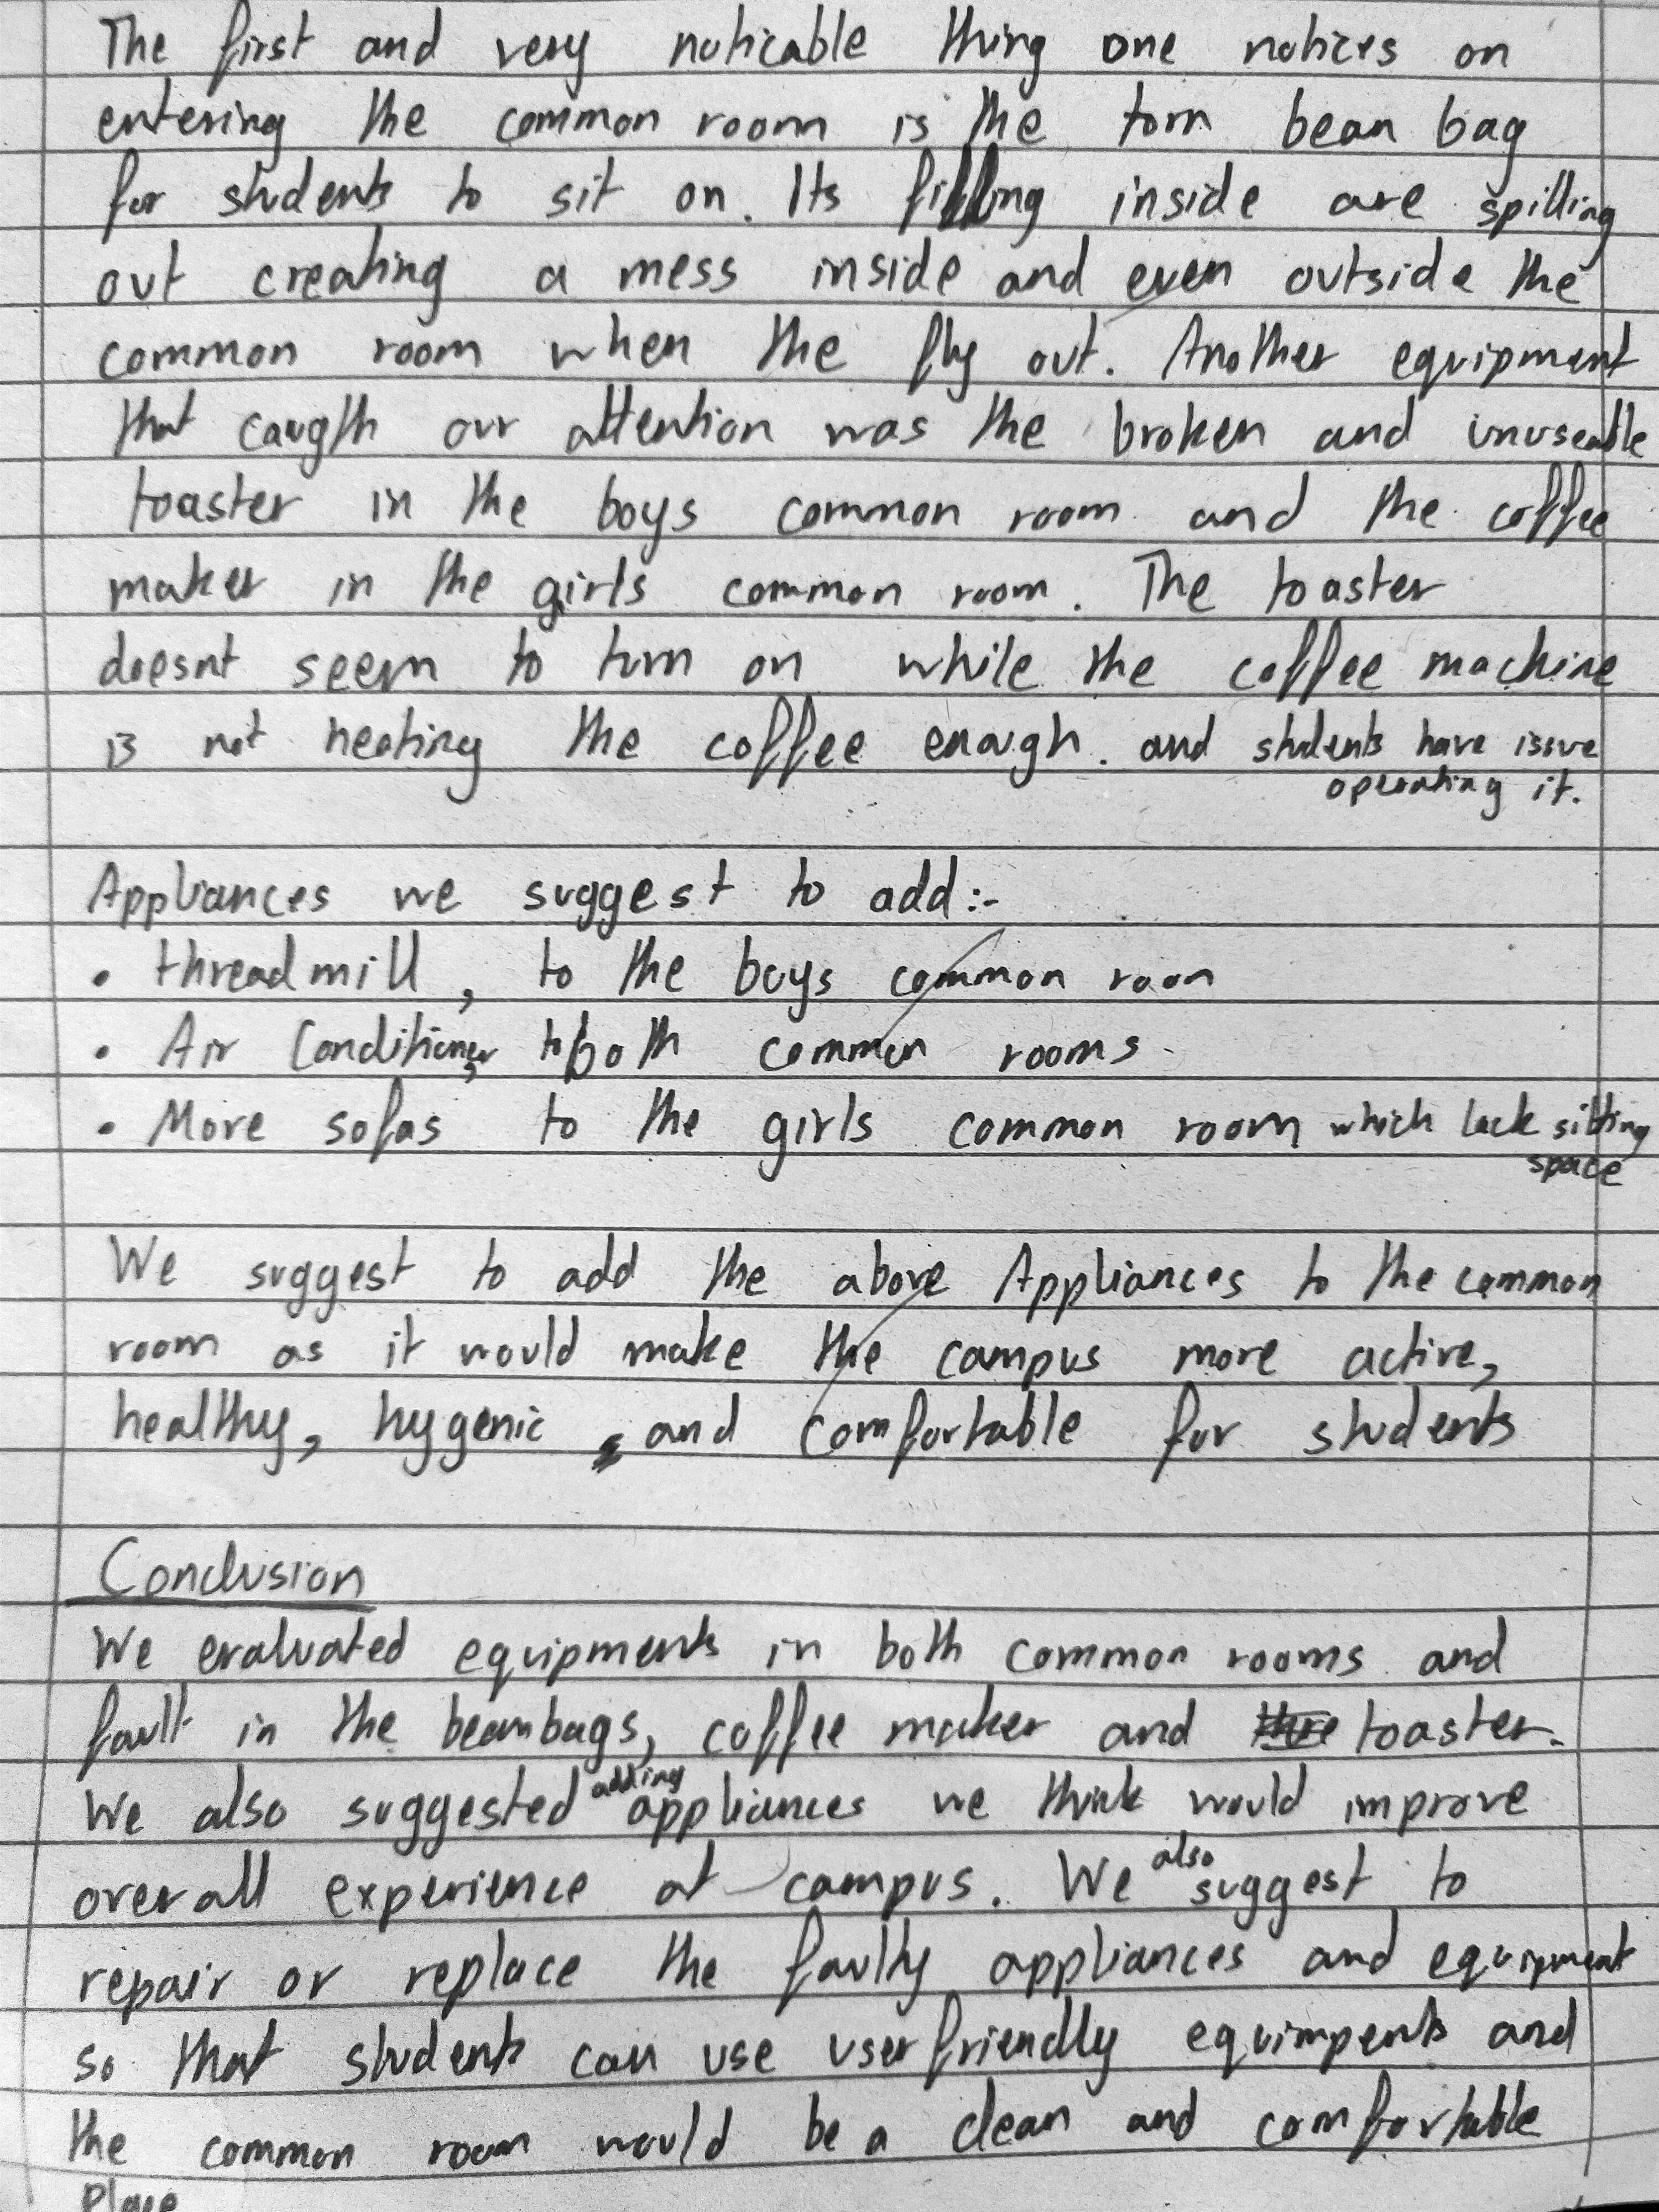 The first and very noticable thing one notices on
entering the common room is the torn bean bag
for students to sit on. Its filling inside are spilling
out creating a mess inside and even outside the
common room when the fly out. Another equipment
that caugth our attention was the broken and unuseable
toaster in the boys common room and the coffee
maker in the girls common room. The toaster
doesnt seem to turn on while the coffee machine
is not heating the coffee enough. and students have issue
operating it.
Appliances we suggest to add:-
• threadmill, to the boys common room
• Air Conditioner, to both common rooms.
• More sofas to the girls common room which lack sitting
space
We suggest to add the above Appliances to the common
room as it would make the campus more active,
healthy, hygenic, and comfortable for students
Conclusion
We evaluated equipments in both common rooms and
fault in the beanbags, coffee maker and toaster.
We also suggested adding appliances we think would improve
overall experience at campus. We also suggest to
repair or replace the faulty appliances and equipment
so that students can use userfriendly equimpents and
the common room would be a clean and comfortable
place